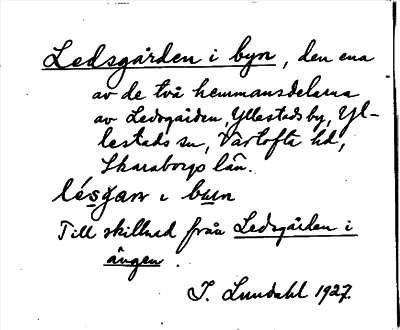 Ledsgården i byn, den ena
av de två hemmansdelarna
av Ledsgården, Yllestads by, Yl-
lestads sn, Vartofta hd,
Skaraborgs län.
lésgan i byn
Till skillnad från Ledsgården i
ängen.
I. Lundahl 1927.